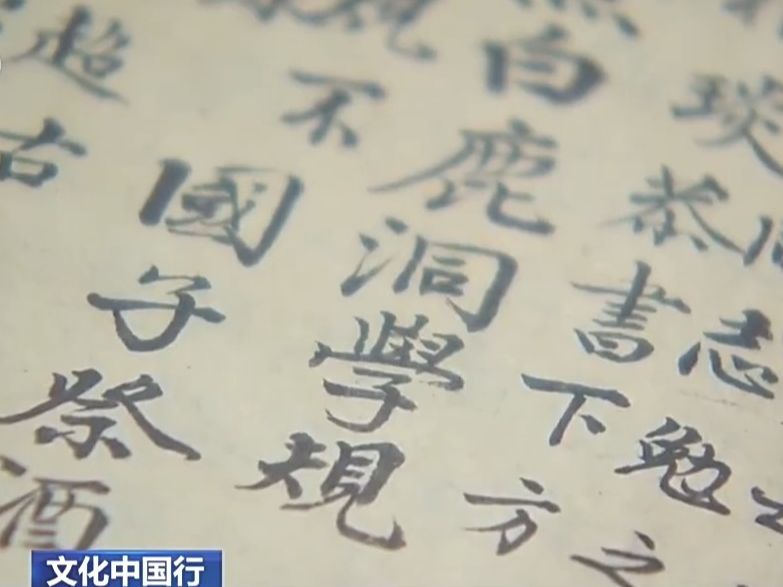 志勉之
琰恭書下方
白鹿洞學規
不國子祭酒
超古
文化中国行